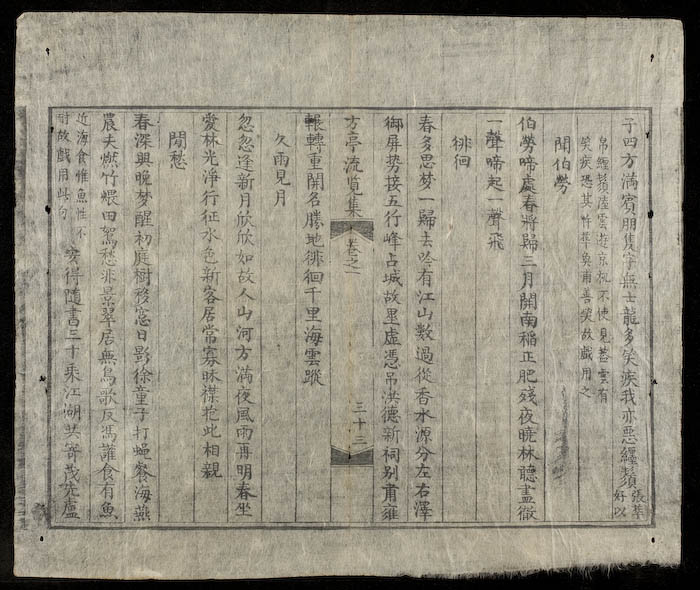 子四方滿賓朋隻字無士龍多笑疾我亦惡纏鬚張華好以
帛纏鬚陸雲遊京机不使見葢雲有
笑疾恐其忤華矣甫善笑故戲用之
聞伯勞
伯勞啼處春將歸三月開南稻正肥殘夜曉林聽盡徹
一聲啼起一聲飛
徘徊
春多思梦一歸去吟有江山數過從香水源分左右澤
御屏势接五行峰占城故壘虛憑吊洪德新祠别肅雍
方亭流覧集 卷之一 三十三
輾轉重開名勝地徘徊千里海雲蹤
久雨見月
忽忽逢新月欣欣如故人山河方滿夜風雨再明春坐
愛林光淨行征水色新客居常寡昧襟抱此相親
閒愁
春深興晚梦醒初庭樹移窓日影徐童子打蝇餐海燕
農夫燃竹煨田鴽愁非景翠居無鳥歌反馮讙食有魚
近海食惟魚性不
耐故戲用此句 安得隨書三十乘江湖共寄茂先廬